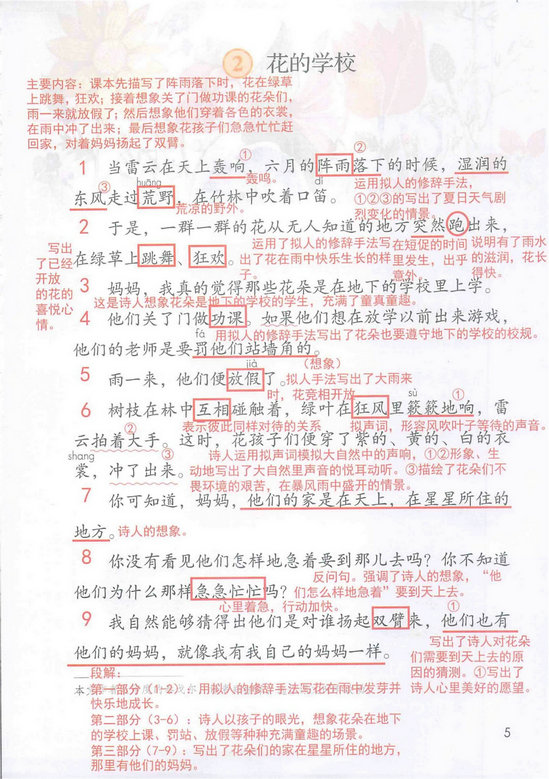 2 花的学校
主要内容：课本先描写了阵雨落下时，花在绿草
上跳舞，狂欢；接着想象关了门做功课的花朵们，
雨一来就放假了；然后想象他们穿着各色的衣裳，
在雨中冲了出来；最后想象花孩子们急急忙忙赶
回家，对着妈妈扬起了双臂。
① ②
1 当雷云在天上轰响，六月的阵雨落下的时候，湿润的
③ huāng 轰鸣。 dí 运用拟人的修辞手法，
东风走过荒野，在竹林中吹着口笛。
①②③的写出了夏日天气剧
荒凉的野外。 烈变化的情景。
2 于是，一群一群的花从无人知道的地方突然跑出来，
写出 运用了拟人的修辞手法写 在短促的时间 说明有了雨水
在绿草上跳舞、狂欢。
了已经 出了花在雨中快乐生长的样 里发生，出乎 的滋润，花长
开放 子。 意外。 得快。
的花的
喜悦心
情。
3 妈妈，我真的觉得那些花朵是在地下的学校里上学。
这是诗人想象花朵是地下的学校的学生，充满了童真童趣。
4 他们关了门做功课。如果他们想在放学以前出来游戏，
fá 用拟人的修辞手法写出了花朵也要遵守地下的学校的校规。
他们的老师是要罚他们站墙角的。
jià （想象）
5 雨一来，他们便放假了。拟人手法写出了大雨来
时，花竞相开放 sù ①
6 树枝在林中互相碰触着，绿叶在狂风里簌簌地响，雷
② 表示彼此同样对待的关系 拟声词，形容风吹叶子等待的声音。
云拍着大手。这时，花孩子们便穿了紫的、黄的、白的衣
shang ③ 诗人运用拟声词模拟大自然中的声响，①②形象、生
裳，冲了出来。
动地写出了大自然里声音的悦耳动听。③描绘了花朵们不
畏环境的艰苦，在暴风雨中盛开的情景。
7 你可知道，妈妈，他们的家是在天上，在星星所住的
地方。诗人的想象。
8 你没有看见他们怎样地急着要到那儿去吗？你不知道
反问句。强调了诗人的想象，“他
他们为什么那样急急忙忙吗？
们怎么样地急着”要到天上去。
心里着急，行动加快。
①
9 我自然能够猜得出他们是对谁扬起双臂来，他们也有
他们的妈妈，就像我有我自己的妈妈一样。
写出了诗人对花朵
们需要到天上去的原
因的猜测。①写出了
诗人心里美好的愿望。
段解：
第一部分（1-2）：用拟人的修辞手法写花在雨中发芽并
快乐地成长。
第二部分（3-6）：诗人以孩子的眼光，想象花朵在地下
的学校上课、罚站、放假等种种充满童趣的场景。
第三部分（7-9）：写出了花朵们的家在星星所住的地方，
那里有他们的妈妈。
5